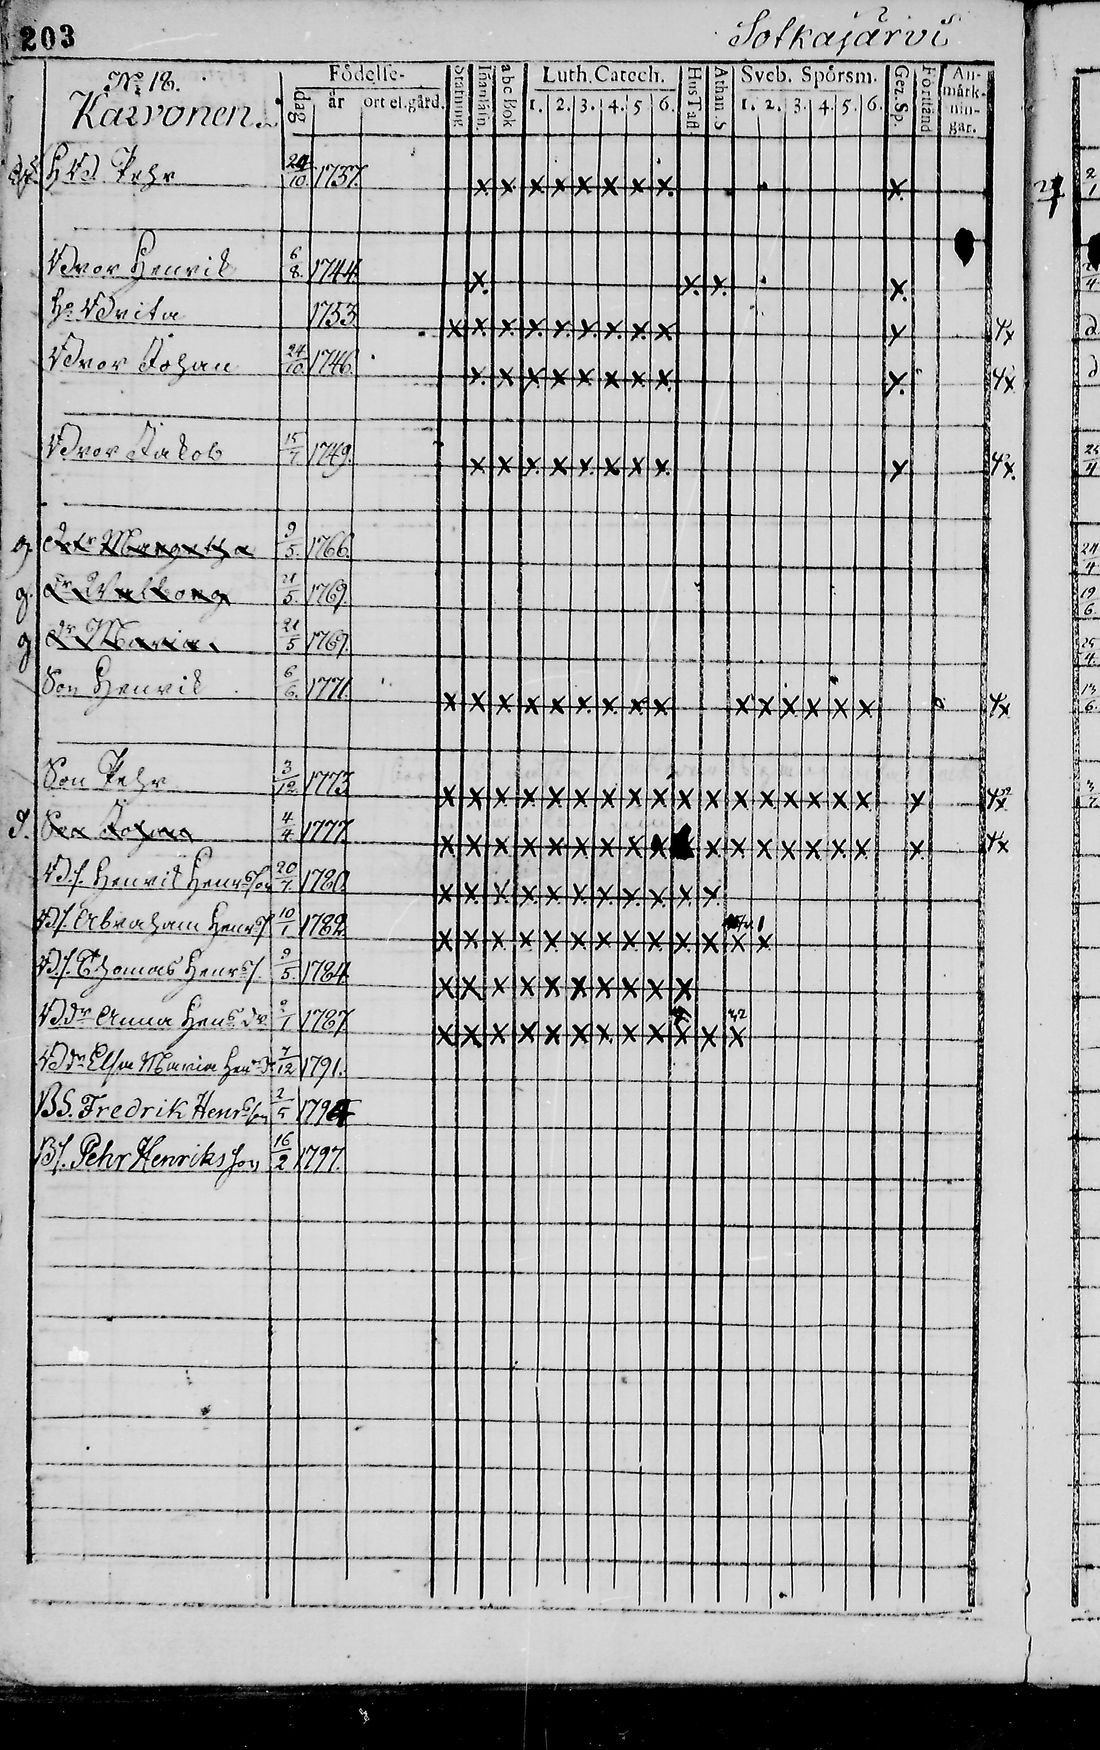 203
Sotkajärvi
No 18.
Karvonen.
Födelse-
dag
år
ort el. gård.
Stafning
Innanläsn.
abc Bok
Luth. Catech.
1. 2. 3. 4. 5 6.
Hus Tafl
Athan. S
Sveb. Spörsm.
1. 2. 3. 4. 5. 6.
Gez. Sp.
Förstånd
An-
märk-
nin-
gar.
Pehr 24/10 1737. x x x x x x x x x
Bror Henrik 6/8 1744. x x x x
H: Brita 1753 x x x x x x x x x x
Bror Johan 24/10 1746. x x x x x x x x x
Bror Jakob 15/7 1749. x x x x x x x x x
g. Margetha 9/5. 1766.
g. Dr Walborg 21/5. 1769.
g Dr Maria 21/5 1769.
Son Henrik 6/6. 1771. x x x x x x x x x x x x x x x
Son Pehr 3/12 1773 x x x x x x x x x x x x x x x x x x
Son Johan 4/4 1777. x x x x x x x x x x x x x x x x x
B.s. Henrik Henrsson 20/7. 1780. x x x x x x x x x x x
B.s. Abraham Henrs. 10/1 1782. x x x x x x x x x x x x x
B.s. Thomas Henrs. 9/5. 1784 x x x x x x x x x x
Bdr Anna Hens dr 2/1 1787 x x x x x x x x x x x x
Bdr Elsa Maria Henr dr 7/12 1791.
BS. Fredrik Henrsson 2/5 1794
Bs. Pehr Henriksson 16/2 1797.